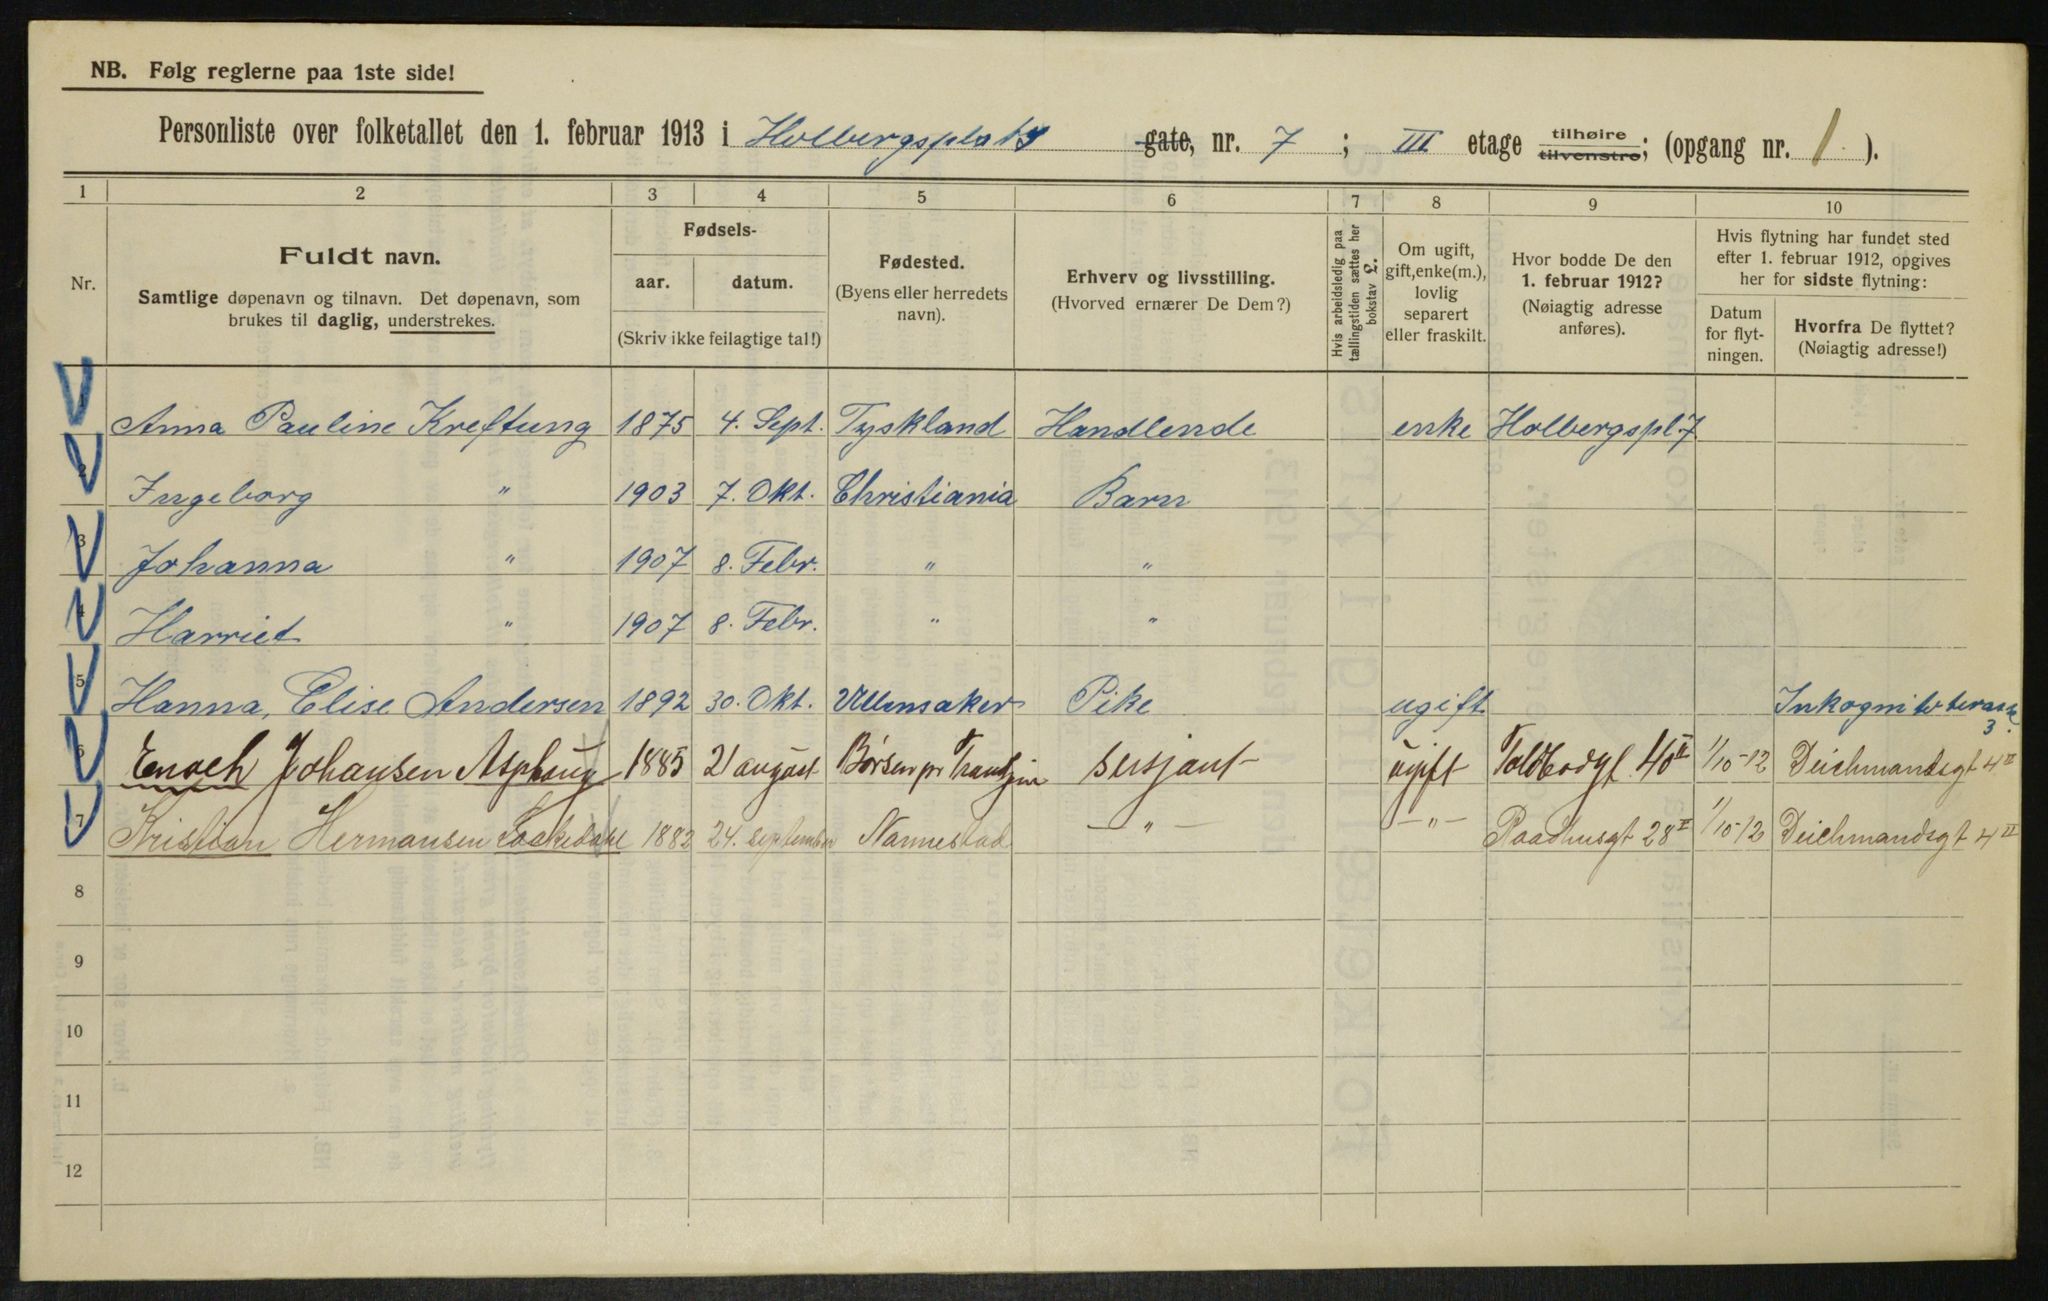 NB. Følg reglerne paa 1ste side!
Personliste over folketallet den 1. februar 1913 i Holbergsplats gate, nr. 7 ; III etage tilhøire tilvenstre; (opgang nr. 1. ).
1 2 3 4 5 6 7 8 9 10
Nr.
Fuldt navn.
Samtlige døpenavn og tilnavn. Det døpenavn, som
brukes til daglig, understrekes.
Fødsels-
aar. datum.
(Skriv ikke feilagtige tal!)
Fødested.
(Byens eller herredets
navn).
Erhverv og livsstilling.
(Hvorved ernærer De Dem?)
Hvis arbeidsledig paa
tællingstiden sættes her
bokstav L.
Om ugift,
gift, enke(m.),
lovlig
separert
eller fraskilt.
Hvor bodde De den
1. februar 1912?
(Nøiagtig adresse
anføres).
Hvis flytning har fundet sted
efter 1. februar 1912, opgives
her for sidste flytning:
Datum
for flyt-
ningen.
Hvorfra De flyttet?
(Nøiagtig adresse!)
Anna Pauline Kreftung 1875 4. Sept. Tyskland Handlende enke Holbergspl. 7
2 Ingeborg " 1903 7. Okt. Christiania Barn
3 Johanna " 1907 8. Febr. " "
4 Harriet " 1907 8. Febr. " "
5 Hanna, Elise Andersen 1892 30. Okt. Ullensaker Pike ugift Inkognitoterasse 3.
6 Enoch Johansen Asphaug 1885 21 august Børsen pr Trondhjem sersjant ugift Toldbodgt. 40 II 1/10-12 Deichmandsgt 4 II
7 Kristian Hermansen 1882 24. september Nannestad — " — — " — Raadhusgt 28 II 1/10-12 Deichmandsgt 4 II
8
9
10
11
12